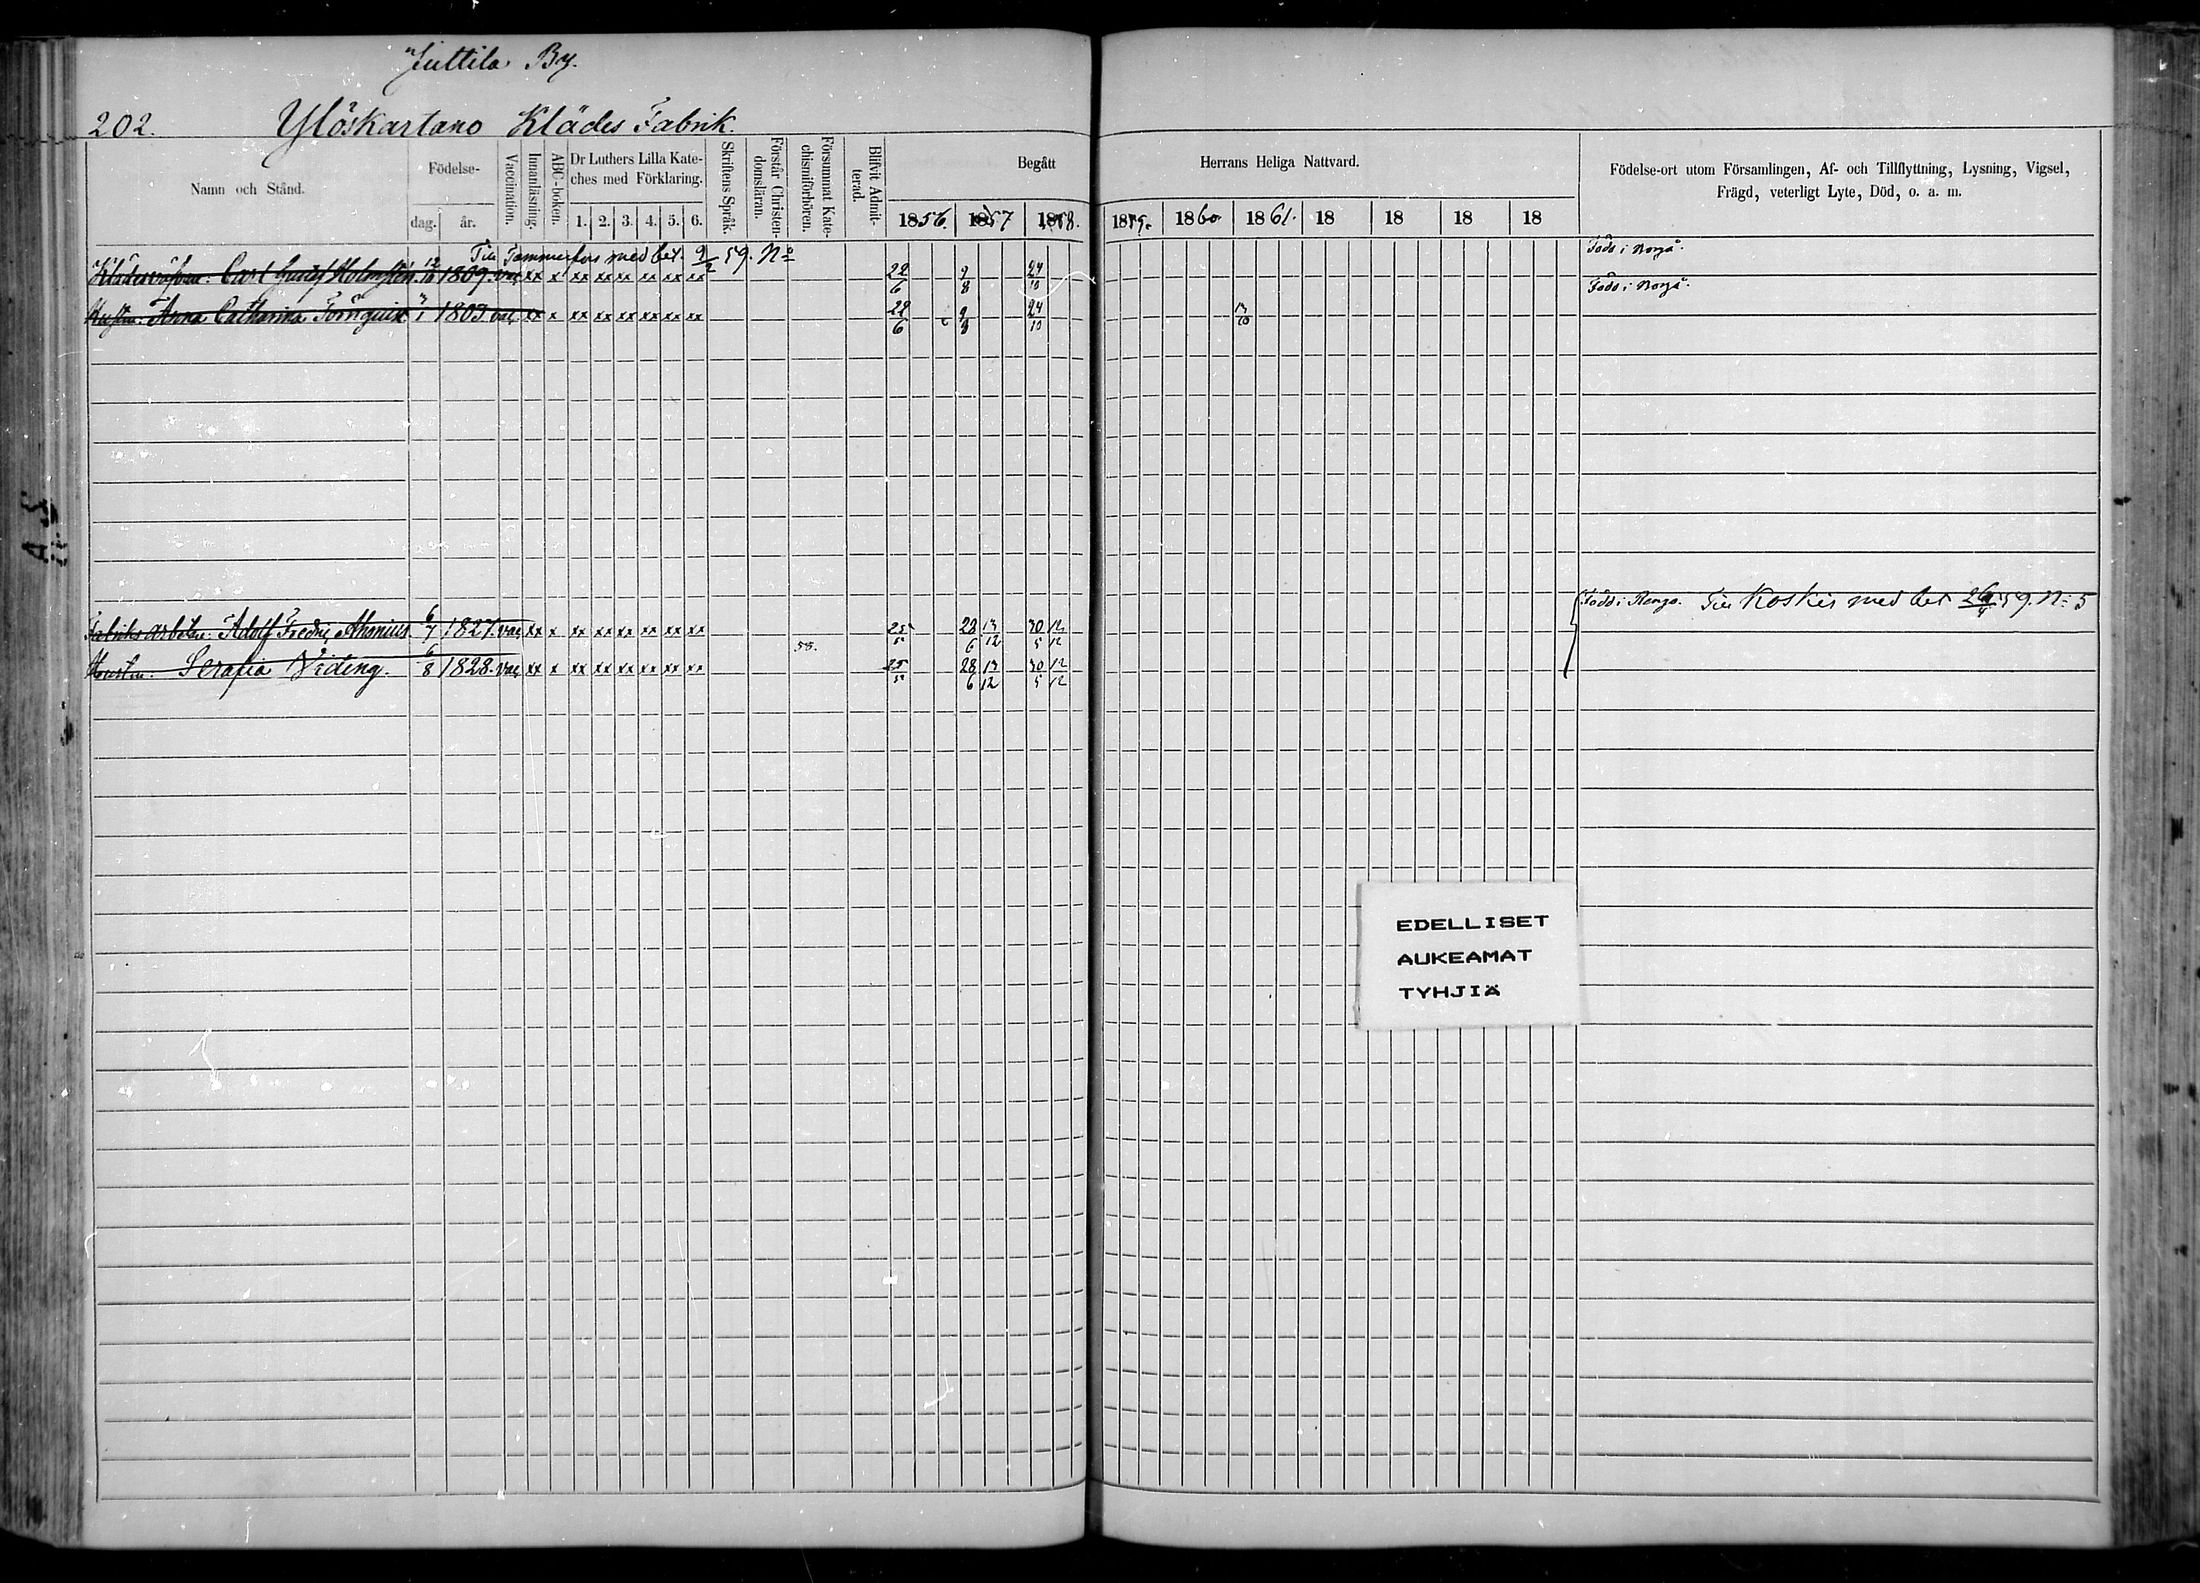 Juttila By.
202. Ylöskartano Klädes Fabrik.
Namn och Stånd.
Födelse-
dag. år.
Vaccination.
Innanläsning.
ABC-boken.
Dr Luthers Lilla Kate-
ches med Förklaring.
1. 2. 3. 4. 5. 6.
Skriftens Språk.
Förstår Christen-
domsläran.
Försummat Kate-
chismiförhören.
Blifvit Admit-
terad.
Begått Herrans Heliga Nattvard.
1856. 1857 1858. 1859. 1860. 1861. 18 18 18 18
Födelse-ort utom Församlingen, Af- och Tillflyttning, Lysning, Vigsel,
Frägd, veterligt Lyte, Död, o. a. m.
Till Tammerfors med bet. 9/2 59. No
Född i Borgå.
Carl Gustaf Holmsten 12/10 1809. vac xx x xx xx xx xx xx xx 22/6 9/8 24/10
Född i Borgå.
Hustru. Anna Catharina Törnquist 1803 vac xx x xx xx xx xx xx xx 22/6 9/8 24/10 13/10
Född i Rengo. Till Koskis med bet 26/4 59. N: 5
Fabriks arbetar. Adolf Fredric Ahonius 6/7 1827. vac xx x xx xx xx xx xx xx 25/5 28/6 13/12 30/5 12/12
55.
Hustru. Serafia Viding. 6/8 1828. vac xx x xx xx xx xx xx xx 25/5 28/6 13/12 30/5 12/12
EDELLISET
AUKEAMAT
TYHJIÄ